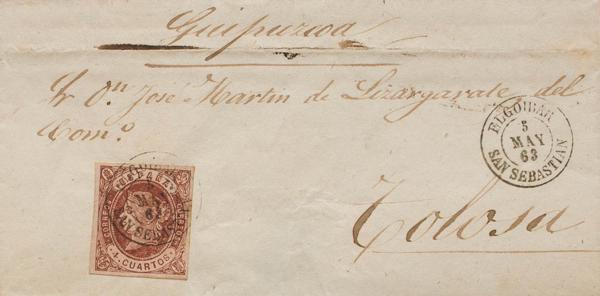 Guipuzcoa
Sr Dn José Martin de Lizargarate del
Como.
ELGOIBAR
5
MAY
63
SAN SEBASTIAN
CORREOS ESPAÑA
4 CUARTOS
MAY
63
SAN SEBAS
Tolosa